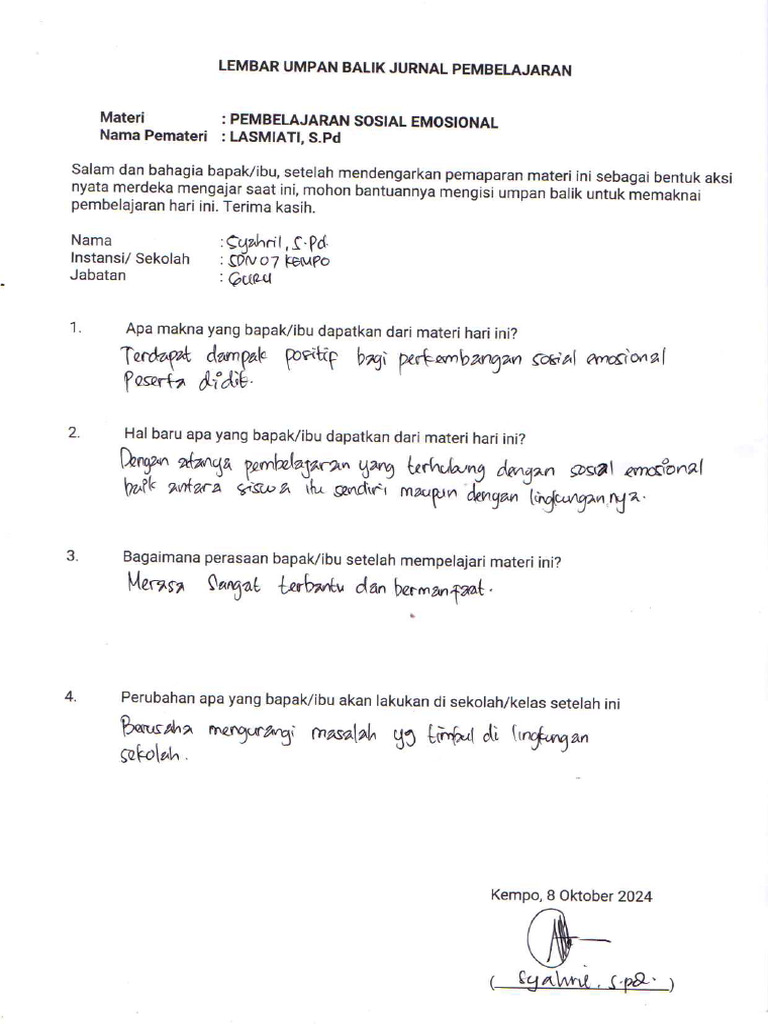 LEMBAR UMPAN BALIK JURNAL PEMBELAJARAN
Materi : PEMBELAJARAN SOSIAL EMOSIONAL
Nama Pemateri : LASMIATI, S.Pd
Salam dan bahagia bapak/ibu, setelah mendengarkan pemaparan materi ini sebagai bentuk aksi
nyata merdeka mengajar saat ini, mohon bantuannya mengisi umpan balik untuk memaknai
pembelajaran hari ini. Terima kasih.
Nama : Syahril, S.Pd.
Instansi/ Sekolah : SDN 07 KEMPO
Jabatan : GURU
1. Apa makna yang bapak/ibu dapatkan dari materi hari ini?
Terdapat dampak positif bagi perkembangan sosial emosional
Peserta didik.
2. Hal baru apa yang bapak/ibu dapatkan dari materi hari ini?
Dengan adanya pembelajaran yang terhubung dengan sosial emosional
baik antara siswa itu sendiri maupun dengan lingkungannya.
3. Bagaimana perasaan bapak/ibu setelah mempelajari materi ini?
Merasa Sangat terbantu dan bermanfaat.
4. Perubahan apa yang bapak/ibu akan lakukan di sekolah/kelas setelah ini
Berusaha mengurangi masalah yg timbul di lingkungan
sekolah.
Kempo, 8 Oktober 2024
( Syahril, S.Pd. )